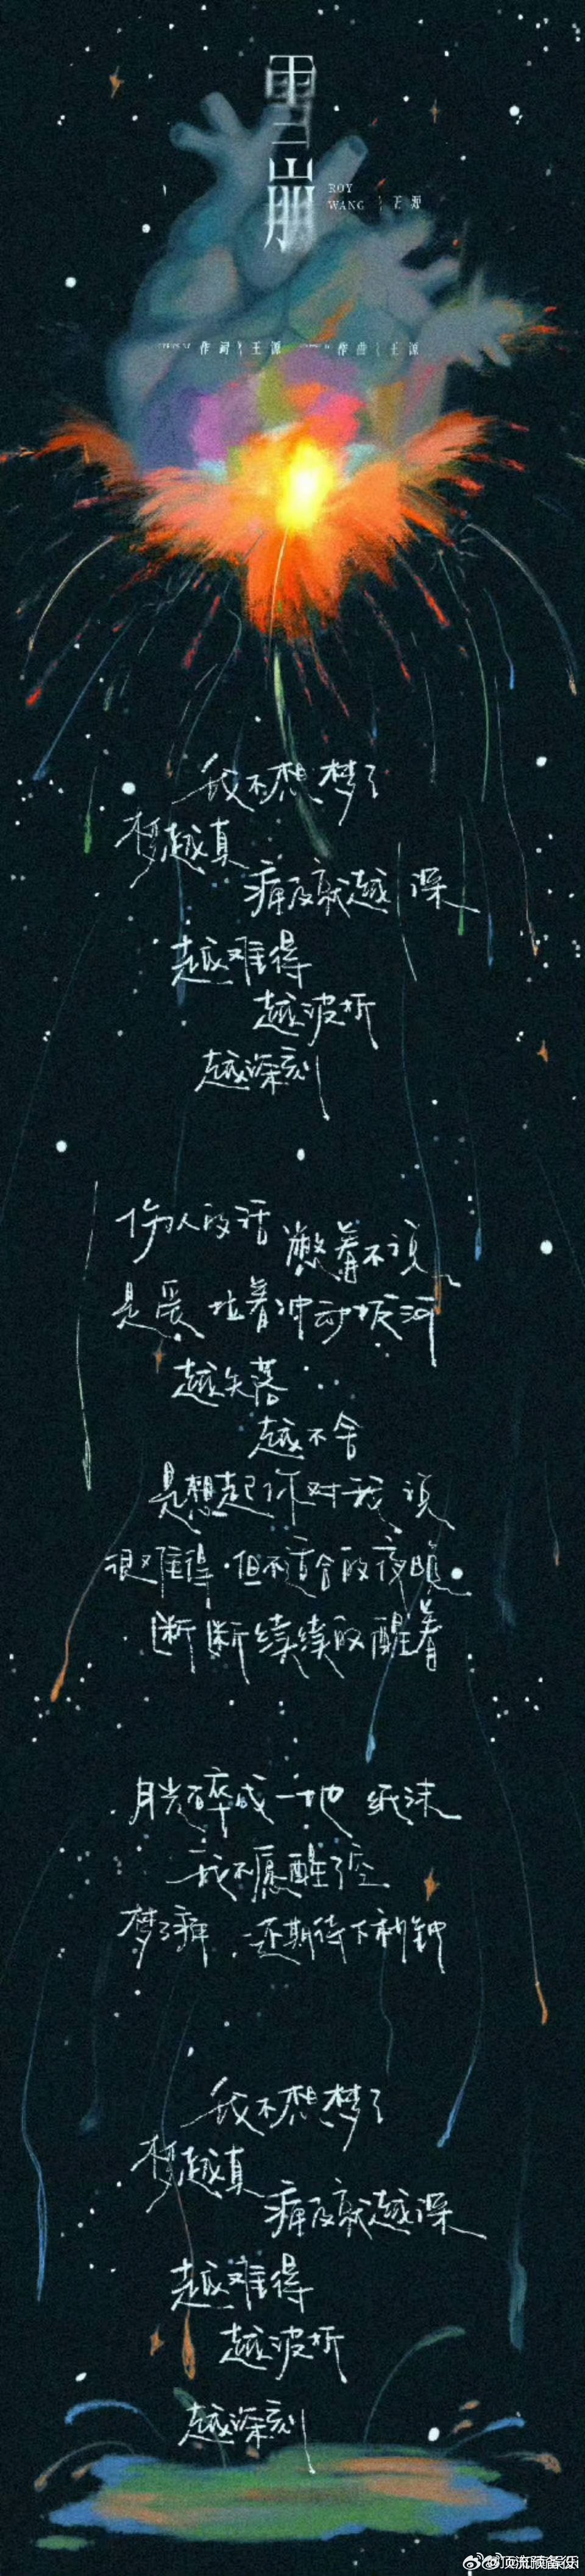 雪崩
ROY
WANG 王源
作词 王源 作曲 王源
我不想 梦了
梦越真
痛及就越深
越难得
越波折
越深刻
伤人的话 憋着不说
是爱 拉着冲动拔河
越失落
越不舍
是想起你对我说
很难得 但不适合的夜晚
断断续续的醒着
月光碎成一地 纸沫
我不愿醒了空
梦了痛 还期待下秒钟
我不想梦了
梦越真
痛及就越深
越难得
越波折
越深刻